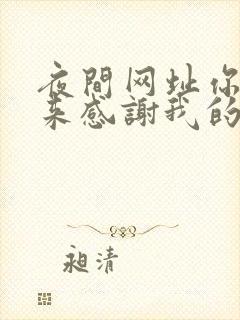 夜間网址你
来感謝我的
昶清